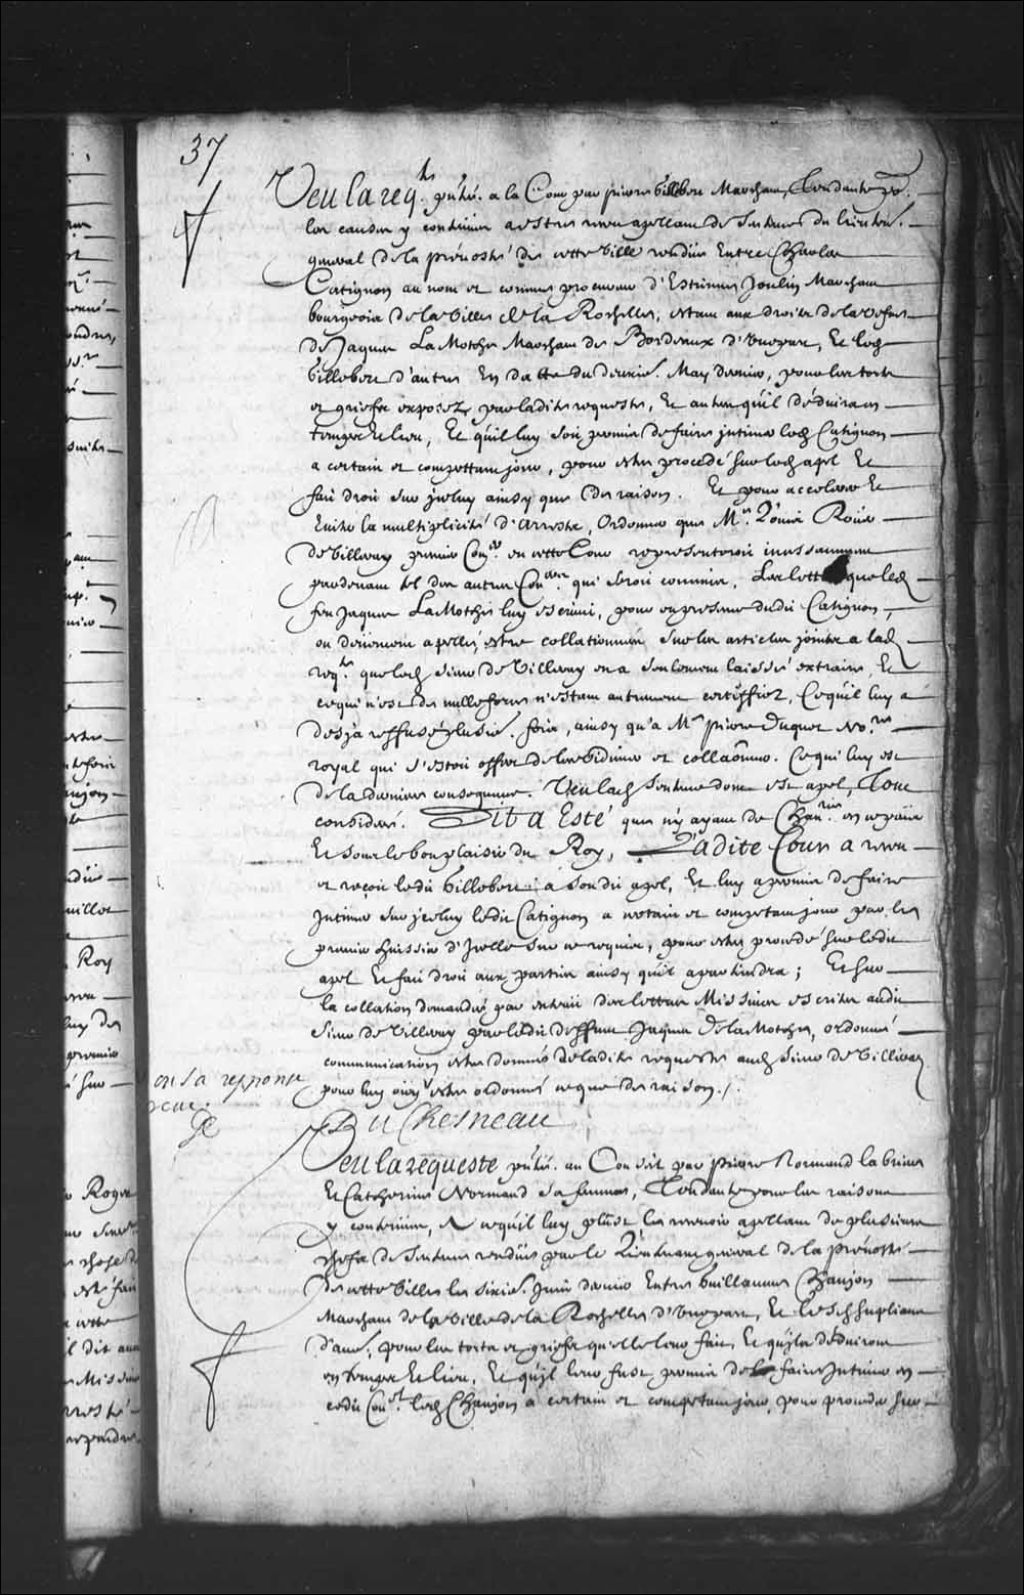 37
Veu la reqte. pntée. a la Cour par pierre Billebon Marchant, Tendante po.
les causes y contenües a estre receu apellant de Sentence du lieuten.
general de la prévosté de cette Ville rendüe Entre Charles
Catignon au nom et comme procureur d'Estienne Joulin Marchant
bourgeois de la Ville de la Rochelle, estant aux droits de la vefve
de Jaques La Mothe Marchant de Bordeaux d'Une part, Et led.
billebon d'autre En datte du deuxie. May dernier, pour les torts
et griefs exposez par ladite requeste, Et autres qu'il déduira en
temps et lieu, Et qu'il luy soit permis de faire jntimer led. Catignon
a certain et compettant jour, pour estre procedé sur led. apel Et
fait droit sur jceluy ainsy que de raison. Et pour accelerer Et
Eviter la multiplicité d'arrests, Ordonner que Me. Loüis Roüer
de Villeray premier Coner. en cette Cour representeroit incessamment
pardevant tel des autres Coners. qui seroit commis, Les lettres que led.
feu Jaques La Mothe luy escrivi, pour en presence dudit Catignon,
ou deüement apellé, estre collationnées sur les articles jointes a lad.
reqte. que led. Sieur de Villeray en a seulement laissé extraire, Et
ce qui n'est de nulle force n'estant autrement certiffiez, Ce qu'il luy a
desja reffusé plusie. fois, ainsy qu'a Me. pierre Duquet Nore.
royal qui s'estoit offert de les vidimer et collaonner. Ce qui luy est
de la derniere consequence. Veu lad. Sentence dont est apel, Tout
consideré. Dit a Esté que n'y ayant de Chanrie. en ce païs
Et sous le bon plaisir du Roy, Ladite Cour a receu
et reçoit ledit billebon a son dit apel, Et luy a permis de faire
Jntimer sur jceluy ledit Catignon a certain et competant jour par le
premier huissier d'Jcelle sur ce requis, pour estre procedé sur ledit
apel Et fait droit aux parties ainsy qu'il apartiendra; Et sur
la collation demandée par extrait des lettres Missives escrites audit
Sieur de Villeray par ledit deffunt Jaques de la Mothe, ordonné
communication estre donnée de ladite requeste aud. Sieur de Villeray
pour luy oüy estre ordonné ce que de raison./.
en sa responce
DuChesneau
Veu la requeste pntée. au Conseil par pierre Normand la briere
Et Catherine Normand sa femme, Tendante pour les raisons
y contenües, A ce qu'il luy plust les recevoir apellans de plusieurs
chefs de Sentence rendüe par le Lieutenant general de la prévosté
de cette Ville le sixie. Juin dernier Entre Guillaume Chanjon
Marchant de la Ville de la Rochelle d'Une part, Et lesd. supliants
d'aue., pour les torts et griefs qu'elle leur fait, Et qu'jls déduiront
en temps et lieu, Et qu'jl leur fust permis de faire Jntimer en
cedit Conel. led. Chanjon a certain et competant jour, pour proceder sur